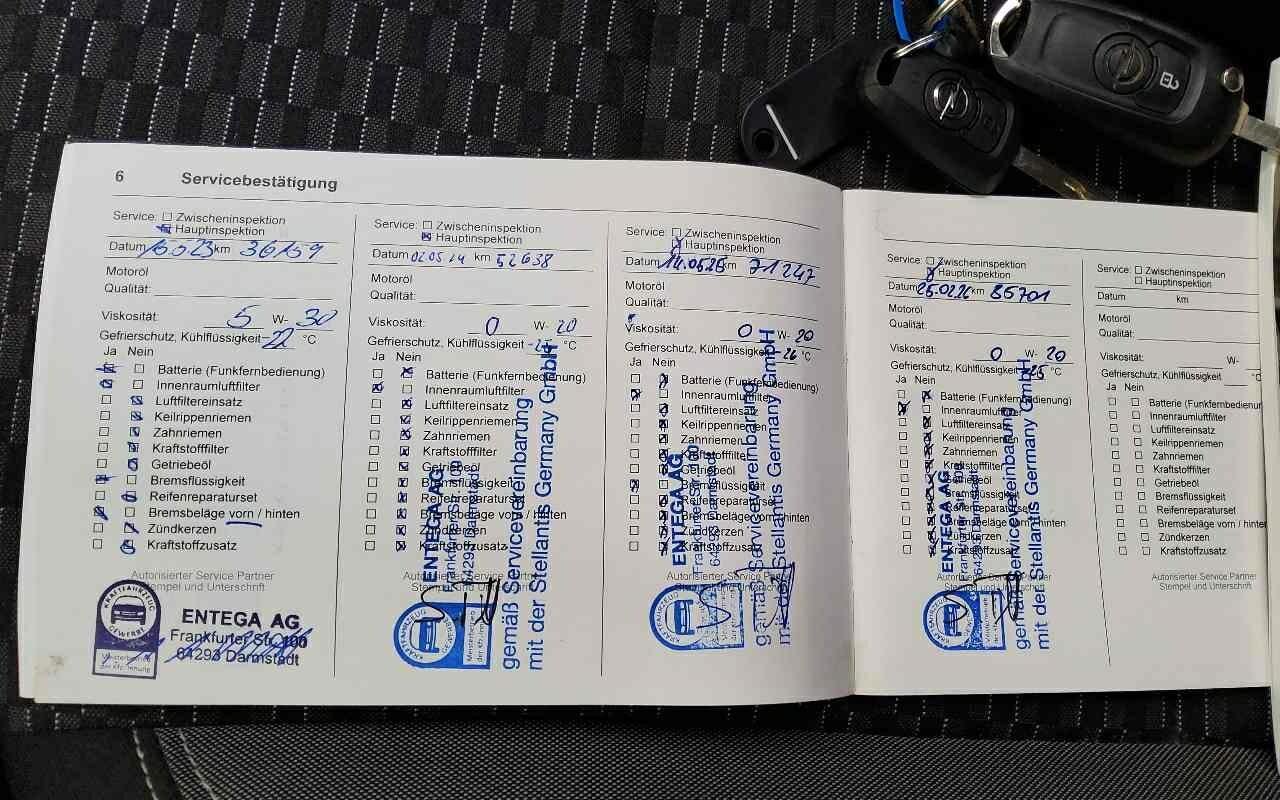 6 Servicebestätigung
Service: Zwischeninspektion
Hauptinspektion
Datum 15.5.23 km 36159
Motoröl
Qualität:
Viskosität: 5 W- 30
Gefrierschutz, Kühlflüssigkeit -22 °C
Ja Nein
Batterie (Funkfernbedienung)
Innenraumluftfilter
Luftfiltereinsatz
Keilrippenriemen
Zahnriemen
Kraftstofffilter
Getriebeöl
Bremsflüssigkeit
Reifenreparaturset
Bremsbeläge vorn / hinten
Zündkerzen
Kraftstoffzusatz
Autorisierter Service Partner
Stempel und Unterschrift
KRAFTFAHRZEUG GEWERBE
Meisterbetrieb
der Kfz-Innung
ENTEGA AG
Frankfurter Str. 100
64293 Darmstadt
Service: Zwischeninspektion
Hauptinspektion
Datum 02.05.24 km 52638
Motoröl
Qualität:
Viskosität: 0 W- 20
Gefrierschutz, Kühlflüssigkeit °C
Ja Nein
Batterie (Funkfernbedienung)
Innenraumluftfilter
Luftfiltereinsatz
Keilrippenriemen
Zahnriemen
Kraftstofffilter
Getriebeöl
Bremsflüssigkeit
Reifenreparaturset
Bremsbeläge vorn / hinten
Zündkerzen
Kraftstoffzusatz
Autorisierter Service Partner
Stempel und Unterschrift
KRAFTFAHRZEUG GEWERBE
Meisterbetrieb
der Kfz-Innung
ENTEGA AG
Frankfurter Str. 100
64293 Darmstadt
gemäß Servicevereinbarung
mit der Stellantis Germany GmbH
Service: Zwischeninspektion
Hauptinspektion
Datum 14.05.25 km 71247
Motoröl
Qualität:
Viskosität: 0 W- 20
Gefrierschutz, Kühlflüssigkeit -26 °C
Ja Nein
Batterie (Funkfernbedienung)
Innenraumluftfilter
Luftfiltereinsatz
Keilrippenriemen
Zahnriemen
Kraftstofffilter
Getriebeöl
Bremsflüssigkeit
Reifenreparaturset
Bremsbeläge vorn / hinten
Zündkerzen
Kraftstoffzusatz
Autorisierter Service Partner
Stempel und Unterschrift
KRAFTFAHRZEUG GEWERBE
ENTEGA AG
Frankfurter Str. 100
64293 Darmstadt
gemäß Servicevereinbarung
mit der Stellantis Germany GmbH
Service: Zwischeninspektion
Hauptinspektion
Datum 25.02.26 km 85701
Motoröl
Qualität:
Viskosität: 0 W- 20
Gefrierschutz, Kühlflüssigkeit -25 °C
Ja Nein
Batterie (Funkfernbedienung)
Innenraumluftfilter
Luftfiltereinsatz
Keilrippenriemen
Zahnriemen
Kraftstofffilter
Getriebeöl
Bremsflüssigkeit
Reifenreparaturset
Bremsbeläge vorn / hinten
Zündkerzen
Kraftstoffzusatz
Autorisierter Service Partner
Stempel und Unterschrift
KRAFTFAHRZEUG GEWERBE
ENTEGA AG
Frankfurter Str. 100
64293 Darmstadt
gemäß Servicevereinbarung
mit der Stellantis Germany GmbH
Service: Zwischeninspektion
Hauptinspektion
Datum km
Motoröl
Qualität:
Viskosität: W-
Gefrierschutz, Kühlflüssigkeit °C
Ja Nein
Batterie (Funkfernbedienun
Innenraumluftfilter
Luftfiltereinsatz
Keilrippenriemen
Zahnriemen
Kraftstofffilter
Getriebeöl
Bremsflüssigkeit
Reifenreparaturset
Bremsbeläge vorn / hinten
Zündkerzen
Kraftstoffzusatz
Autorisierter Service Partner
Stempel und Unterschrift